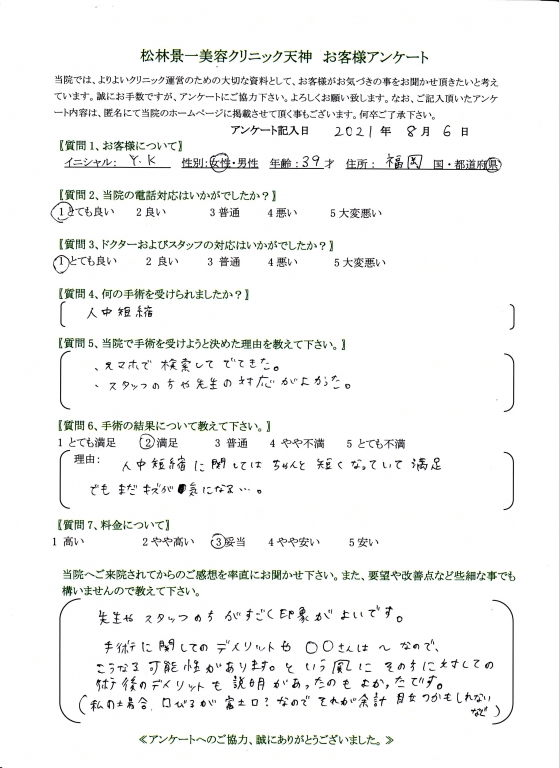 松林景一美容クリニック天神　お客様アンケート
当院では、よりよいクリニック運営のための大切な資料として、お客様がお気づきの事をお聞かせ頂きたいと考え
ています。誠にお手数ですが、アンケートにご協力下さい。よろしくお願い致します。なお、ご記入頂いたアンケ
ート内容は、匿名にて当院のホームページに掲載させて頂く事もございます。何卒ご了承下さい。
アンケート記入日　2021年 8月 6日
〖質問1、お客様について〗
イニシャル： Y.K　性別：女性・男性　年齢：39才　住所： 福岡　国・都道府県
〖質問2、当院の電話対応はいかがでしたか？〗
1とても良い　2良い　3普通　4悪い　5大変悪い
〖質問3、ドクターおよびスタッフの対応はいかがでしたか？〗
1とても良い　2 良い　3 普通　4悪い　5大変悪い
〖質問4、何の手術を受けられましたか？〗
人中短縮
〖質問5、当院で手術を受けようと決めた理由を教えて下さい。〗
、スマホで検索してでてきた。
、スタッフの方や先生の対応がよかった。
〖質問6、手術の結果について教えて下さい。〗
1 とても満足　2満足　3 普通　4 やや不満　5 とても不満
理由：　人中短縮に関してはちゃんと短くなっていて満足
でもまだキズが気になる…。
〖質問7、料金について〗
1 高い　2やや高い　3妥当　4やや安い　5安い
当院へご来院されてからのご感想を率直にお聞かせ下さい。また、要望や改善点など些細な事でも
構いませんので教えて下さい。
先生やスタッフの方がすごく印象がよいです。
手術に関してのデメリットも〇〇さんは～なので、
こうなる可能性があります。という風にその方に対しての
術後のデメリットも説明があったのもよかったです。
(私の場合、口びるが富士口？なのでそれが余計目立つかもしれない
など)
≪アンケートへのご協力、誠にありがとうございました。≫